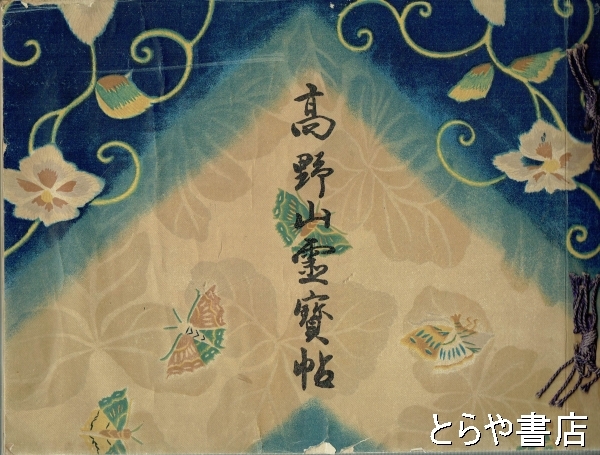 高野山霊寳帖
とらや書店